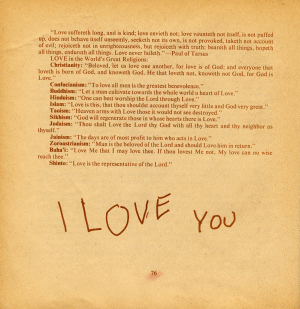 "Love suffereth long, and is kind; love envieth not; love vaunteth not itself, is not puffed
up, does not behave itself unseemly, seeketh not its own, is not provoked, taketh not account
of evil; rejoiceth not in unrighteousness, but rejoiceth with truth; beareth all things, hopeth
all things, endureth all things. Love never faileth."—Paul of Tarsus
LOVE in the World's Great Religions:
Christianity: "Beloved, let us love one another, for love is of God; and everyone that
loveth is born of God, and knoweth God. He that loveth not, knoweth not God, for God is
Love."
Confucianism: "To love all men is the greatest benevolence."
Buddhism: "Let a man cultivate towards the whole world a heart of Love."
Hinduism: "One can best worship the Lord through Love."
Islam: "Love is this, that thou shouldst account thyself very little and God very great."
Taoism: "Heaven arms with Love those it would not see destroyed."
Sikhism: "God will regenerate those in whose hearts there is Love."
Judaism: "Thou shalt Love the Lord thy God with all thy heart and thy neighbor as
thyself."
Jainism: "The days are of most profit to him who acts in Love."
Zoroastrianism: "Man is the beloved of the Lord and should Love him in return."
Baha'i: "Love Me that I may love thee. If thou lovest Me not, My love can no wise
reach thee."
Shinto: "Love is the representative of the Lord."
I LOVE YOU
76